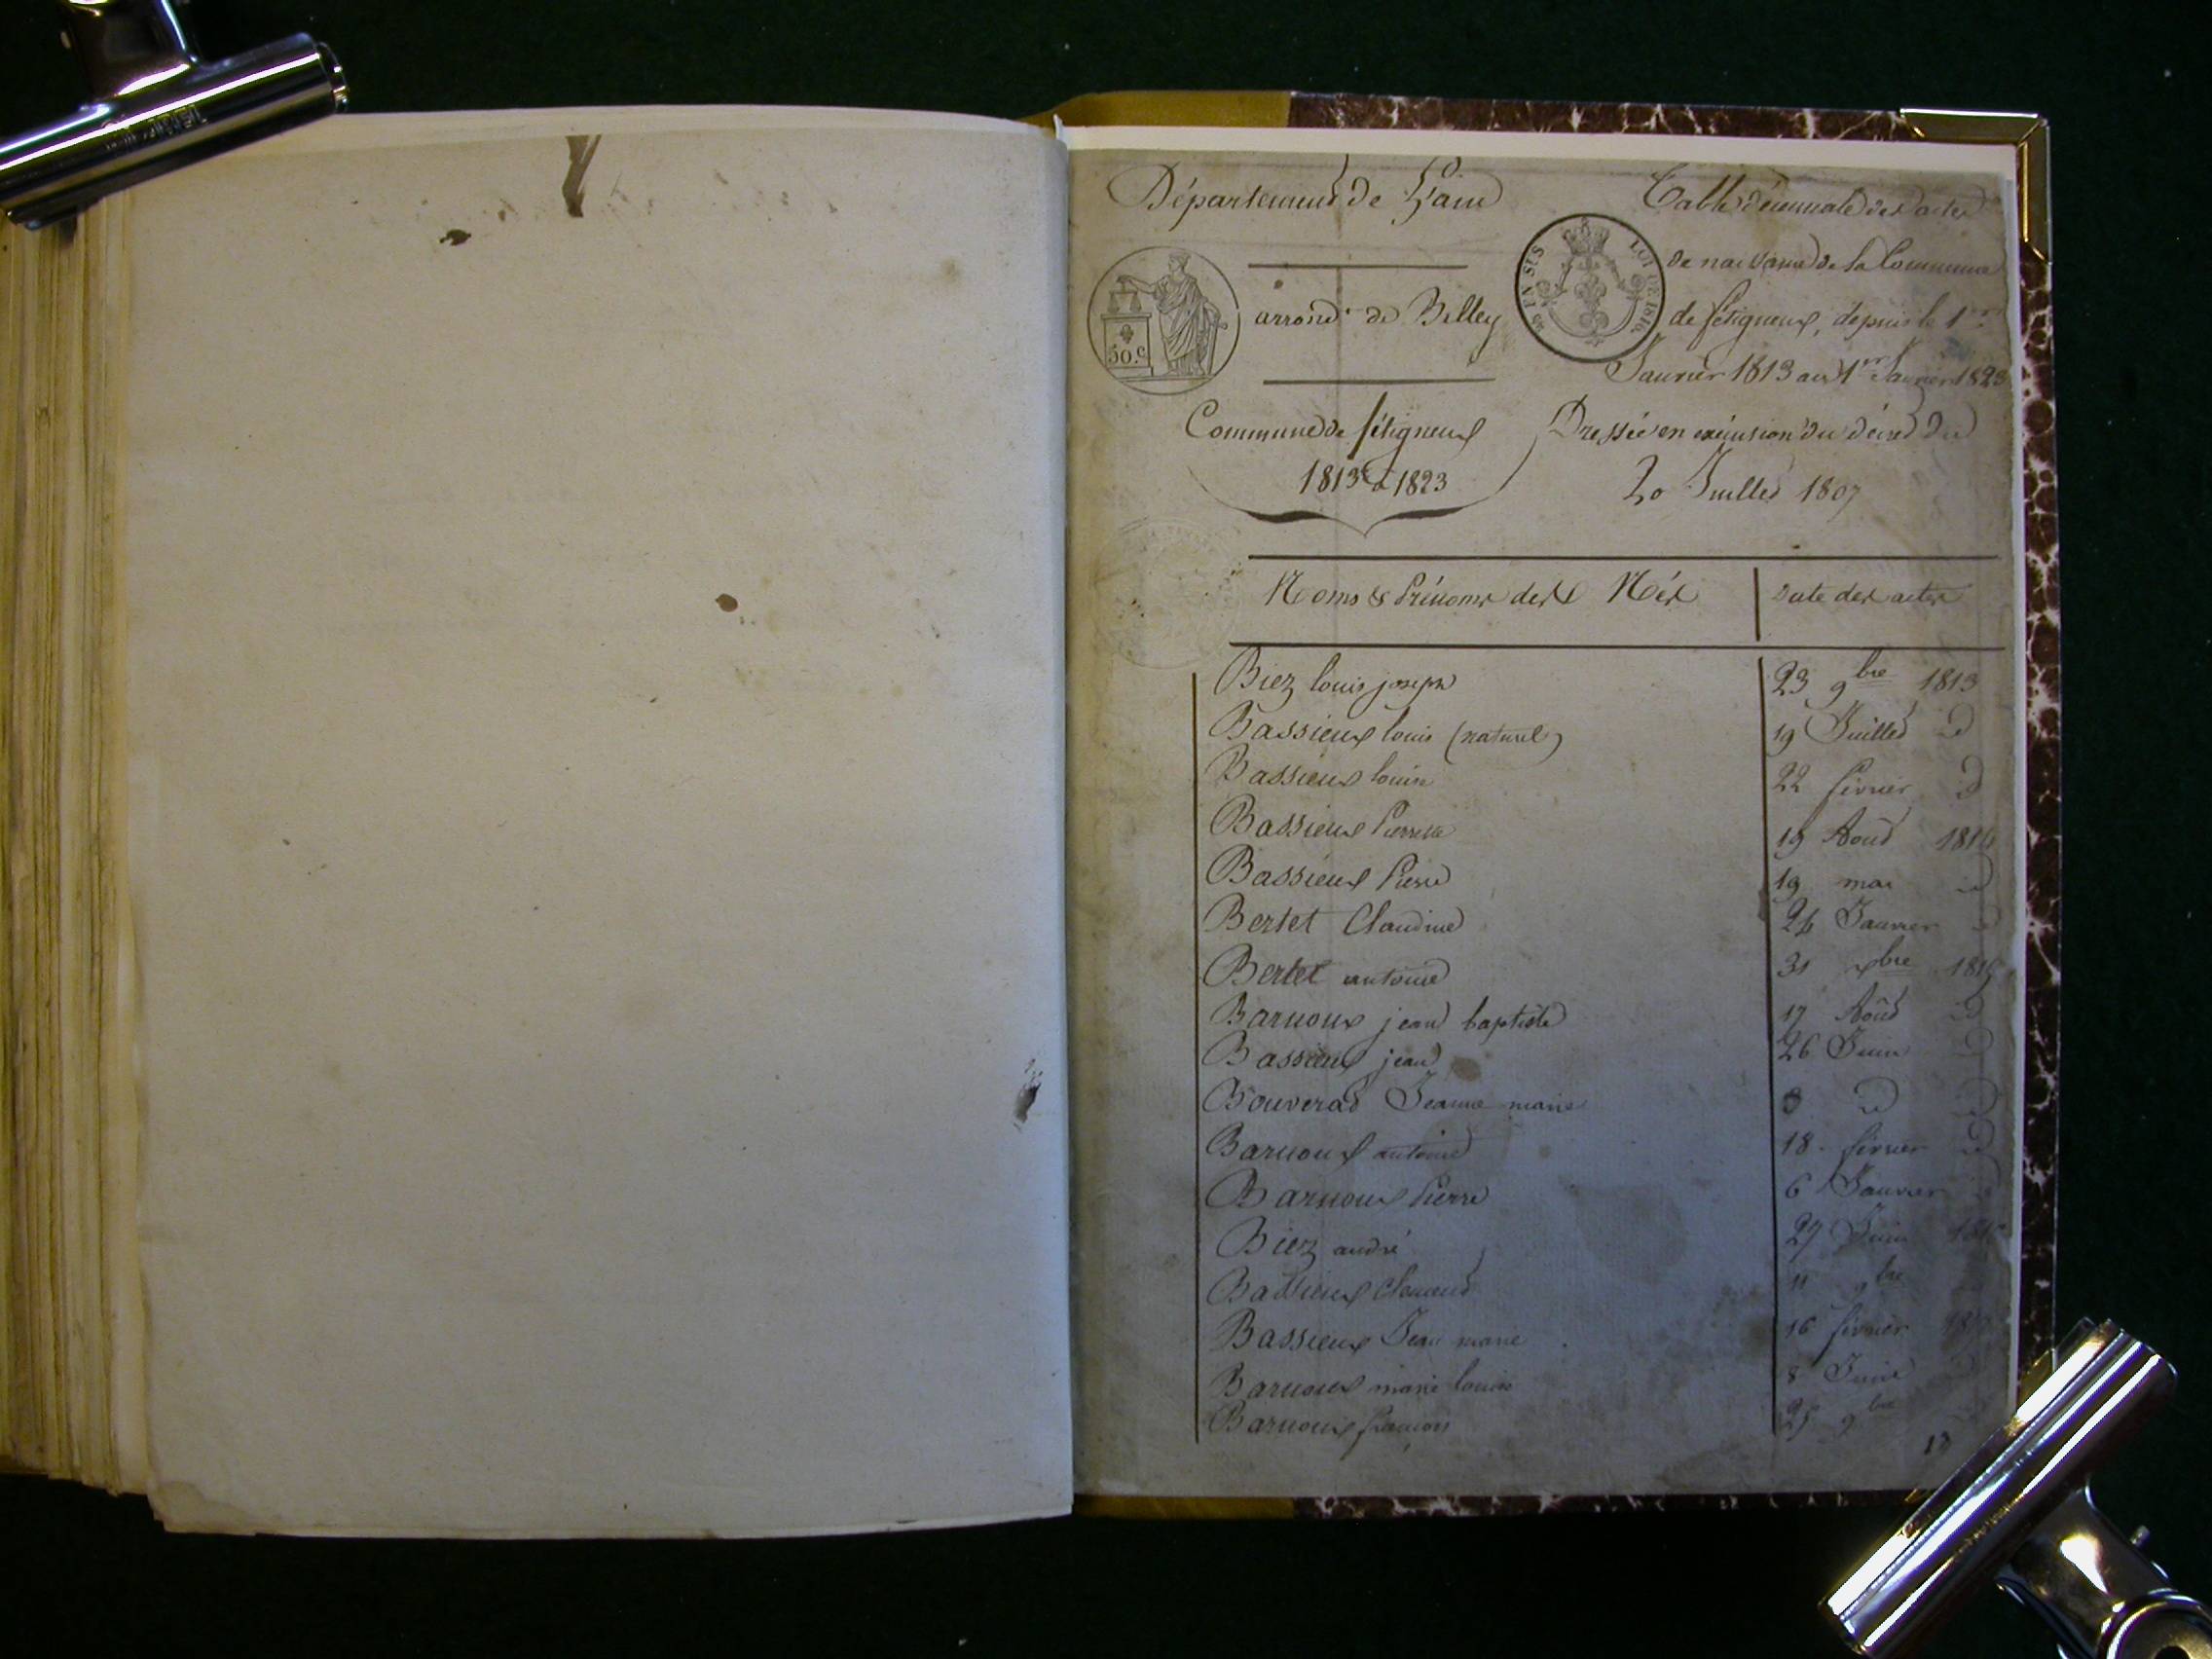 Département de l'ain
Table décennale des actes
de naissance de la Commune
arrond.t de Belley
de seligneux, depuis le 1er
Janvier 1813 au 1er Janvier 1823
50.c
EN SUS
LOI DE 1816
Commune de seligneux
1813 à 1823
Dressée en exécution du décret du
20 Juillet 1807
Noms & Prénoms des Nés
Date des actes
Biez louis joseph 23 9bre 1813
Bassieux louis (naturel) 19 Juillet d
Bassieux louise 22 février d
Bassieux Pierrette 19 Août 1814
Bassieux Pierre 19 mai id
Bertet Claudine 24 Janvier
Bertet antoine 31 xbre 1815
Barnoux jean baptiste 17 Août id
Bassieux jean 26 Juin id
Bouverat Jeanne marie 8 id id
Barnoux antoine 18 février id
Barnoux Pierre 6 Janvier
Biez andré 27 Juin
Bassieux Clément 11 9bre
Bassieux Jean marie 16 février
Barnoux marie louise 8 Juin
Barnoux françois 25 9bre